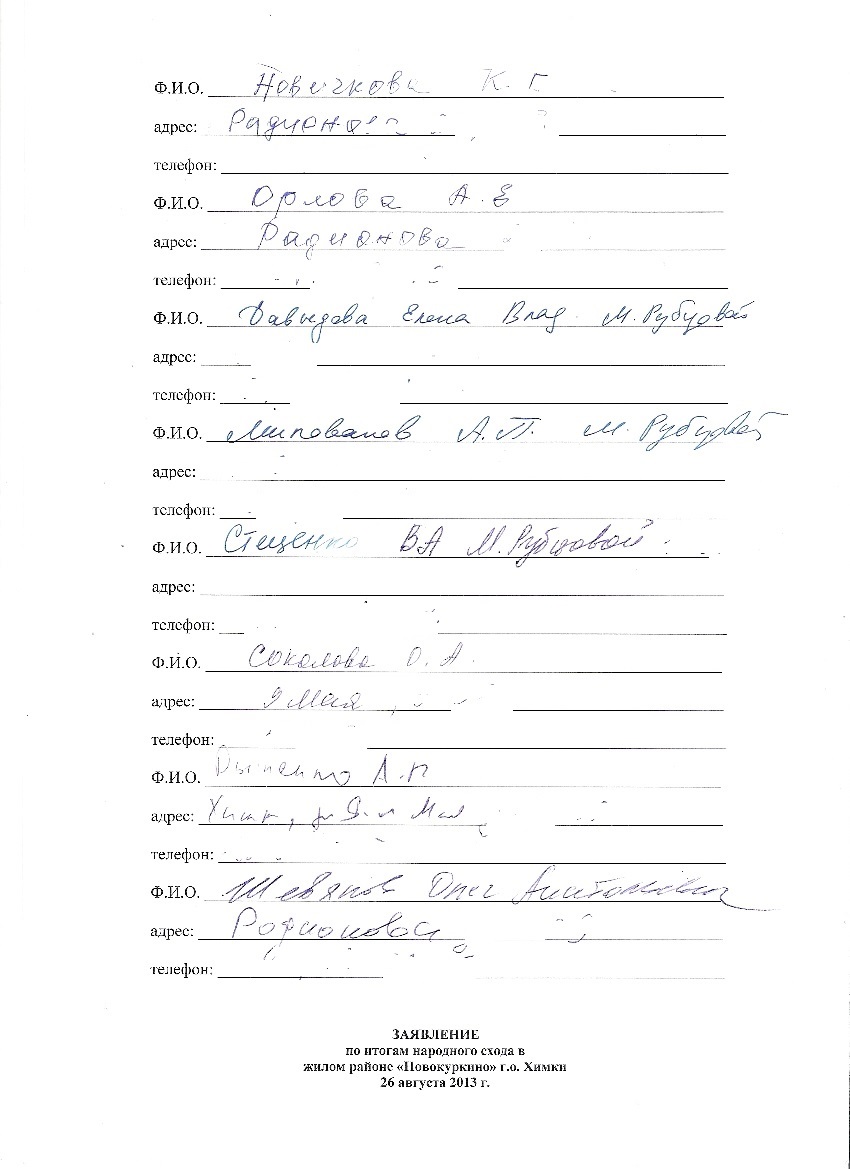 Ф.И.О. Новичкова К. Г
адрес:
телефон:
Ф.И.О. Орлова А. Е
адрес: Радионова
телефон:
Ф.И.О. Давыдова Елена Влад. М. Рубцовой
адрес:
телефон:
Ф.И.О. Милованов А.П. М. Рубцовой
адрес:
телефон:
Ф.И.О. Стеценко ВА М. Рубцовой
адрес:
телефон:
Ф.И.О. Соколова О. А.
адрес: 9 Мая
телефон:
Ф.И.О. А. П
адрес:
телефон:
Ф.И.О. Шевяков Олег Анатольевич
адрес: Родионова
телефон:
ЗАЯВЛЕНИЕ
по итогам народного схода в
жилом районе «Новокуркино» г.о. Химки
26 августа 2013 г.